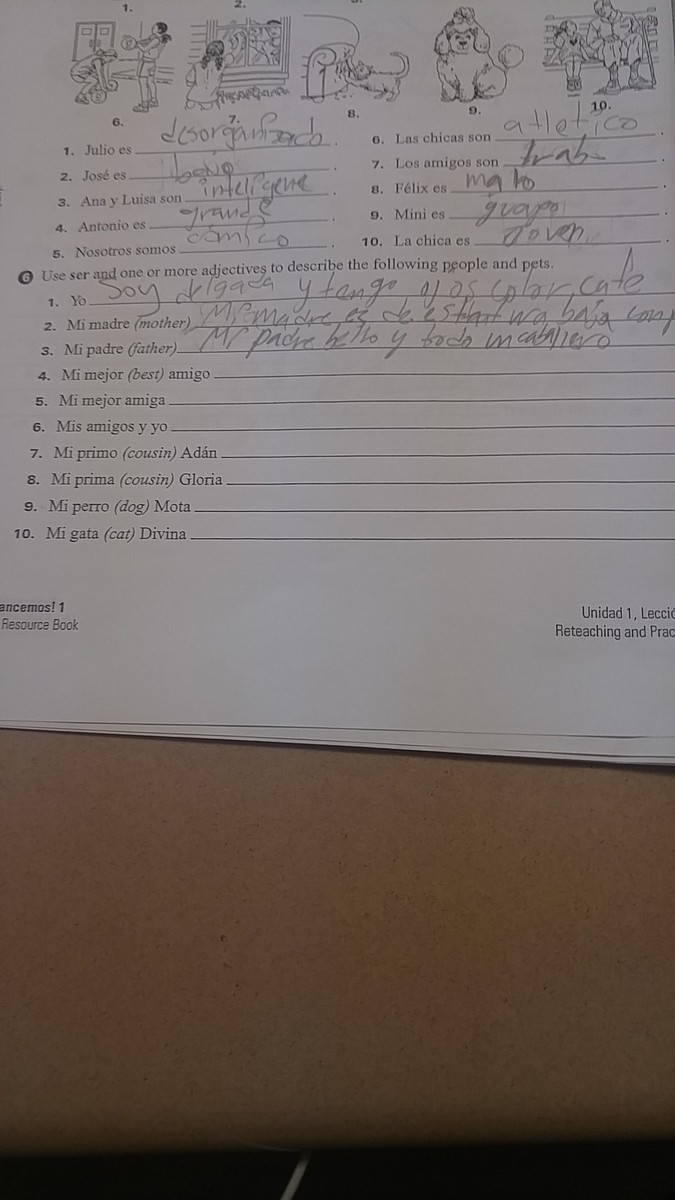 1. 2.
6. 7. 8. 9. 10.
1. Julio es desorganizado.
2. José es bajo.
3. Ana y Luisa son inteligene.
4. Antonio es grande.
5. Nosotros somos cómico.
6. Las chicas son atletico.
7. Los amigos son trab.
8. Félix es malo.
9. Mini es guapo.
10. La chica es joven.
G Use ser and one or more adjectives to describe the following people and pets.
1. Yo Soy delgada y tengo ojos color cafe
2. Mi madre (mother) Mi madre es de estatura baja
3. Mi padre (father) Mi padre bello y todo un caballero
4. Mi mejor (best) amigo
5. Mi mejor amiga
6. Mis amigos y yo
7. Mi primo (cousin) Adán
8. Mi prima (cousin) Gloria
9. Mi perro (dog) Mota
10. Mi gata (cat) Divina
ancemos! 1
Resource Book
Unidad 1, Lecció
Reteaching and Prac